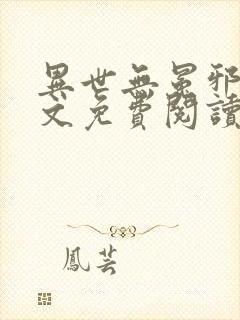 異世無冕邪
文免費閱讀
鳳芸